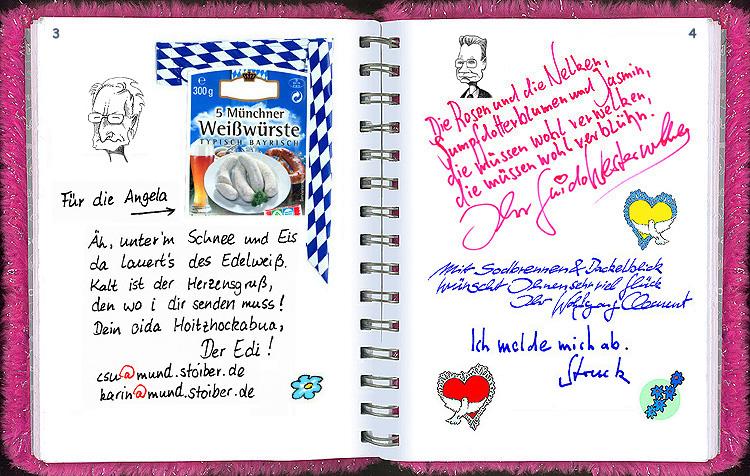 3
e
300 g
5 Münchner
Weißwürste
TYPISCH BAYRISCH
Für die Angela
Äh, unter'm Schnee und Eis
da lauert's des Edelweiß.
Kalt ist der Herzensgruß,
den wo i dir senden muss!
Dein oida Hoitzhockabua,
Der Edi!
csu@mund.stoiber.de
karin@mund.stoiber.de
4
Die Rosen und die Nelken,
Sumpfdotterblumen und Jasmin,
die müssen wohl verwelken,
die müssen wohl verblühn.
Ihr Guido Westerwelle
Mit Sodbrennen & Dackelblick
wünscht Ihnen sehr viel Glück
Ihr Wolfgang Clement
Ich melde mich ab.
Struck